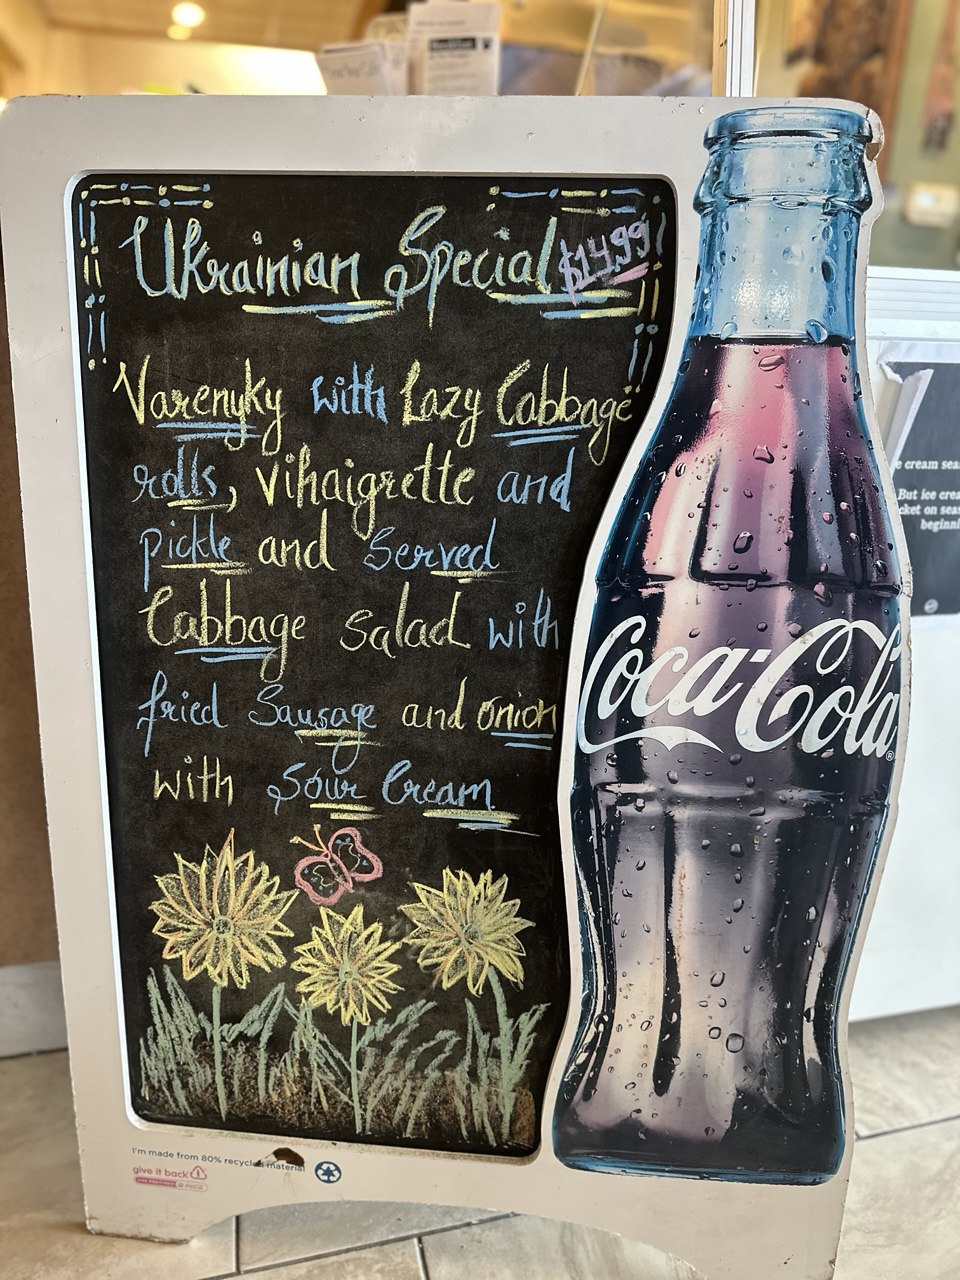 Ukrainian Special $14,99
Varenyky with Lazy Cabbage
rolls, vihaigrette and
pickle and Served
Cabbage salad with
fried Sausage and onion
with Sour Cream
Coca-Cola®
I'm made from 80% recycled material
give it back
e cream sea
But ice crea
cket on seas
beginni